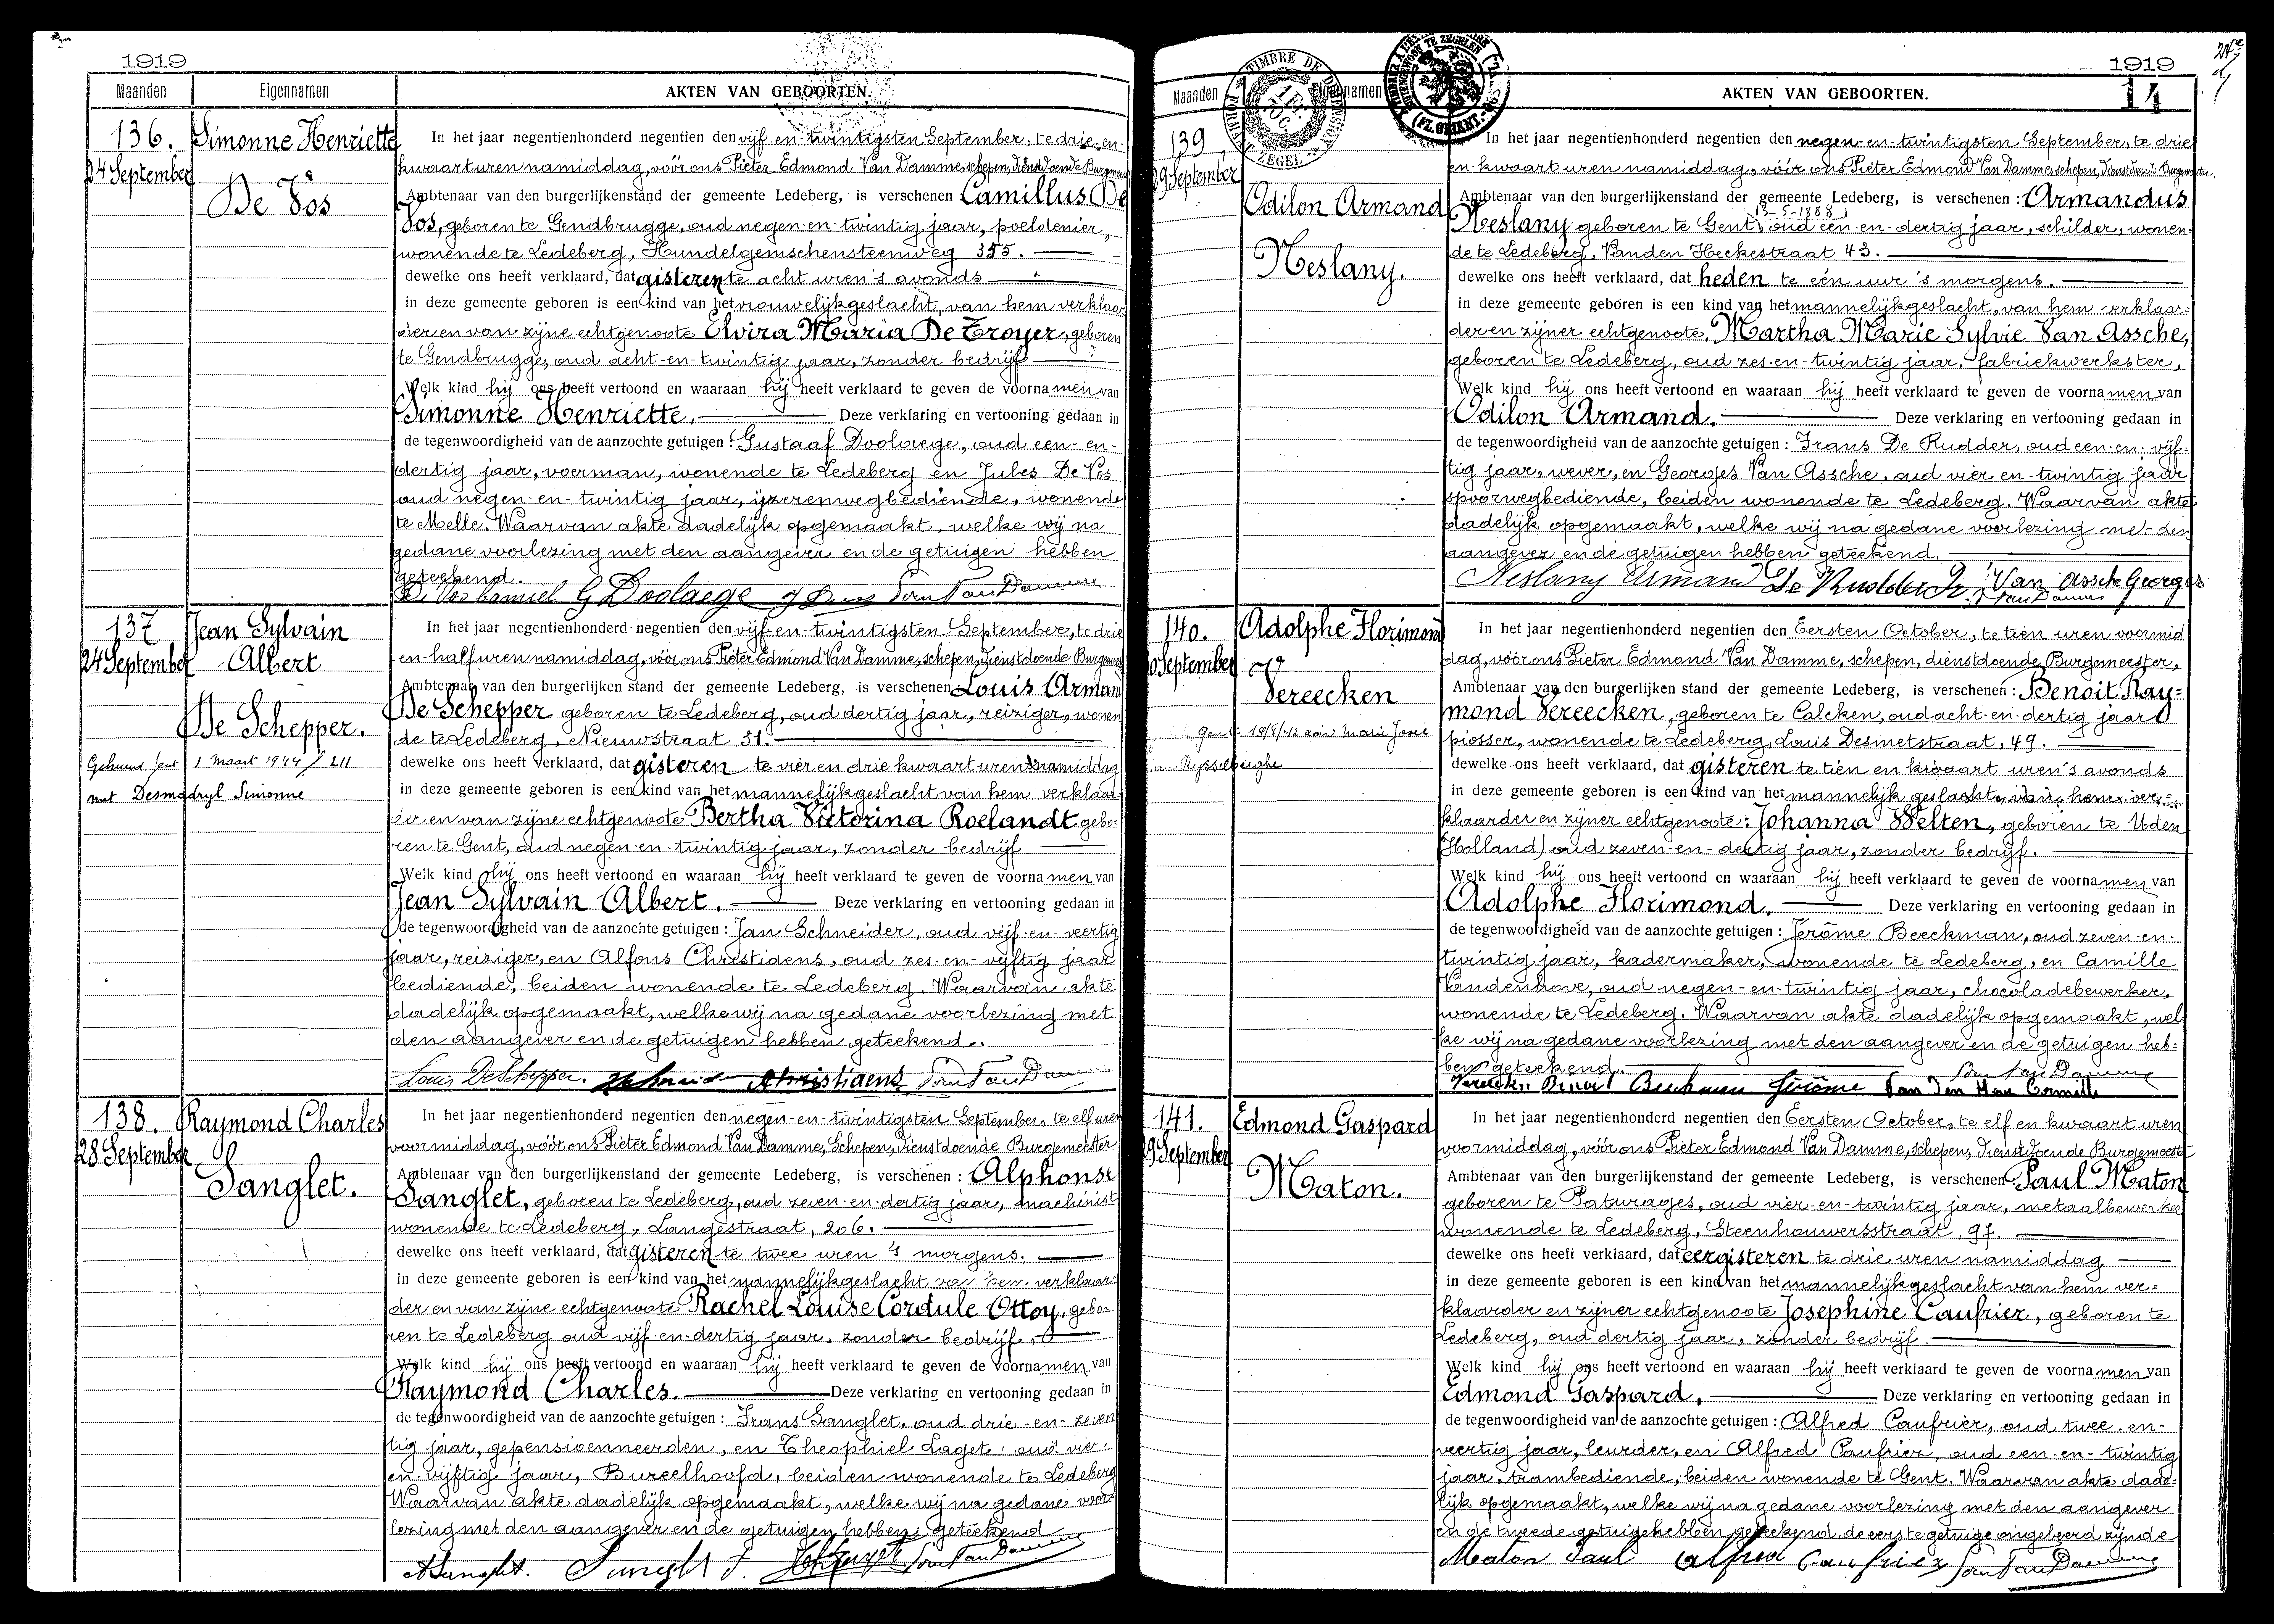 1919
Maanden Eigennamen AKTEN VAN GEBOORTEN.
136. Simonne Henriette
24 September
De Vos
In het jaar negentienhonderd negentien den vijf-en-twintigsten September, te drie-en-
kwaart uren namiddag, vóór ons Pieter Edmond Van Damme, schepen, dienstdoende Burgmeester
Ambtenaar van den burgerlijkenstand der gemeente Ledeberg, is verschenen Camillus De
Vos, geboren te Gendbrugge, oud negen-en-twintig jaar, poeldenier,
wonende te Ledeberg, Hundelgemschensteenweg 355.
dewelke ons heeft verklaard, dat gisteren te acht uren 's avonds
in deze gemeente geboren is een kind van het vrouwelijkgeslacht, van hem verklaar
der en van zijne echtgenoote Elvira Maria De Troyer, geboren
te Gendbrugge, oud acht-en-twintig jaar, zonder bedrijf
Welk kind hij ons heeft vertoond en waaraan hij heeft verklaard te geven de voornamen van
Simonne Henriette. Deze verklaring en vertooning gedaan in
de tegenwoordigheid van de aanzochte getuigen: Gustaaf Doolaege, oud een-en-
dertig jaar, voerman, wonende te Ledeberg en Jules De Vos
oud negen-en-twintig jaar, ijzerenwegbediende, wonende
te Melle. Waarvan akte dadelijk opgemaakt, welke wij na
gedane voorlezing met den aangever en de getuigen hebben
geteekend.
De Vos Kamiel G Doolaege J De Vos Van Damme
137 Jean Sylvain
24 September Albert
De Schepper.
Gehuwd Gent 1 Maart 1944 / 211
met Desmadryl Simonne
In het jaar negentienhonderd negentien den vijf-en-twintigsten September, te drie
en-half uren namiddag, vóór ons Pieter Edmond Van Damme, schepen, dienstdoende Burgmeester
Ambtenaar van den burgerlijken stand der gemeente Ledeberg, is verschenen Louis Armand
De Schepper geboren te Ledeberg, oud dertig jaar, reiziger, wonen
de te Ledeberg, Nieuwstraat 31.
dewelke ons heeft verklaard, dat gisteren te vier en drie kwaart uren namiddag
in deze gemeente geboren is een kind van het mannelijkgeslacht van hem verklaar-
der en van zijne echtgenoote Bertha Victorina Roelandt gebo-
ren te Gent, oud negen-en-twintig jaar, zonder bedrijf
Welk kind hij ons heeft vertoond en waaraan hij heeft verklaard te geven de voornamen van
Jean Sylvain Albert. Deze verklaring en vertooning gedaan in
de tegenwoordigheid van de aanzochte getuigen: Jan Schneider, oud vijf-en-veertig
jaar, reiziger, en Alfons Christiaens, oud zes-en-vijftig jaar
bediende, beiden wonende te Ledeberg. Waarvan akte
dadelijk opgemaakt, welke wij na gedane voorlezing met
den aangever en de getuigen hebben geteekend.
Louis DeSchepper. Christiaens Van Damme
138. Raymond Charles
28 September
Sanglet.
In het jaar negentienhonderd negentien den negen-en-twintigsten September, te elf uren
voormiddag, vóór ons Pieter Edmond Van Damme, Schepen, Dienstdoende Burgemeester
Ambtenaar van den burgerlijkenstand der gemeente Ledeberg, is verschenen: Alphonse
Sanglet, geboren te Ledeberg, oud zeven-en-dertig jaar, machinist
wonende te Ledeberg, Langestraat, 206.
dewelke ons heeft verklaard, dat gisteren te twee uren 's morgens.
in deze gemeente geboren is een kind van het mannelijkgeslacht van hem verklaar-
der en van zijne echtgenoote Rachel Louise Cordule Ottoy, gebo-
ren te Ledeberg oud vijf-en-dertig jaar, zonder bedrijf,
Welk kind hij ons heeft vertoond en waaraan hij heeft verklaard te geven de voornamen van
Raymond Charles. Deze verklaring en vertooning gedaan in
de tegenwoordigheid van de aanzochte getuigen: Frans Sanglet, oud drie-en-zeven
tig jaar, gepensioenneerden, en Theophiel Laget, oud vier-
en-vijftig jaar, Bureelhoofd, beiden wonende te Ledeberg
Waarvan akte dadelijk opgemaakt, welke wij na gedane voor
lezing met den aangever en de getuigen hebben geteekend
A Sanglet. Sanglet F. Van Damme
1919
14
Maanden Eigennamen AKTEN VAN GEBOORTEN.
TIMBRE DE DIMENSION
1 FR.
FORMAAT ZEGEL
139
29 September
Odilon Armand
Neslany.
In het jaar negentienhonderd negentien den negen-en-twintigsten September, te drie
en-kwaart uren namiddag, vóór ons Pieter Edmond Van Damme schepen, Dienstdoende Burgemeester.
Ambtenaar van den burgerlijkenstand der gemeente Ledeberg, is verschenen: Armandus
13-5-1888
Neslany geboren te Gent, oud een-en-dertig jaar, schilder, wonen-
de te Ledeberg, Vanden Heckestraat 43.
dewelke ons heeft verklaard, dat heden te één uur 's morgens.
in deze gemeente geboren is een kind van het mannelijkgeslacht, van hem verklaar-
der en zijner echtgenoote, Martha Marie Sylvie Van Assche,
geboren te Ledeberg, oud zes-en-twintig jaar, fabriekwerkster,
Welk kind hij ons heeft vertoond en waaraan hij heeft verklaard te geven de voornamen van
Odilon Armand. Deze verklaring en vertooning gedaan in
de tegenwoordigheid van de aanzochte getuigen: Frans De Rudder, oud een-en-vijf-
tig jaar, wever, en Georges Van Assche, oud vier-en-twintig jaar
spoorwegbediende, beiden wonende te Ledeberg. Waarvan akte
dadelijk opgemaakt, welke wij na gedane voorlezing met den
aangever en de getuigen hebben geteekend.
Neslany Armand De Rudder Fr. Van Assche Georges
Van Damme
140. Adolphe Florimond
30 September
Vereecken
Gent 19/8/42 aan Marie José
Van Rysselberghe
In het jaar negentienhonderd negentien den Eersten October, te tien uren voormid
dag, vóór ons Pieter Edmond Van Damme, schepen, dienstdoende Burgemeester,
Ambtenaar van den burgerlijken stand der gemeente Ledeberg, is verschenen: Benoit Ray-
mond Vereecken, geboren te Calcken, oud acht-en-dertig jaar
piosser, wonende te Ledeberg, Louis Desmetstraat, 49.
dewelke ons heeft verklaard, dat gisteren te tien en kwaart uren 's avonds
in deze gemeente geboren is een kind van het mannelijk geslacht, van hem ver-
klaarder en zijner echtgenoote: Johanna Welten, geboren te Uden
(Holland) oud zeven-en-dertig jaar, zonder bedrijf.
Welk kind hij ons heeft vertoond en waaraan hij heeft verklaard te geven de voornamen van
Adolphe Florimond. Deze verklaring en vertooning gedaan in
de tegenwoordigheid van de aanzochte getuigen: Jerôme Beeckman, oud zeven-en-
twintig jaar, kadermaker, wonende te Ledeberg, en Camille
Vandenhove, oud negen-en-twintig jaar, chocoladebewerker,
wonende te Ledeberg. Waarvan akte dadelijk opgemaakt, wel
ke wij na gedane voorlezing met den aangever en de getuigen heb-
ben geteekend. Van Damme
Vereecken Benoit Beeckman Jerôme Van Den Hove Camille
141. Edmond Gaspard
29 September
Maton.
In het jaar negentienhonderd negentien den Eersten October, te elf en kwaart uren
voormiddag, vóór ons Pieter Edmond Van Damme, schepen, Dienstdoende Burgemeester
Ambtenaar van den burgerlijken stand der gemeente Ledeberg, is verschenen Paul Maton
geboren te Paturages, oud vier-en-twintig jaar, metaalbewerker
wonende te Ledeberg, Steenhouwersstraat, 97.
dewelke ons heeft verklaard, dat eergisteren te drie uren namiddag
in deze gemeente geboren is een kind van het mannelijkgeslacht van hem ver-
klaarder en zijner echtgenoote Josephine Caufrier, geboren te
Ledeberg, oud dertig jaar, zonder bedrijf.
Welk kind hij ons heeft vertoond en waaraan hij heeft verklaard te geven de voornamen van
Edmond Gaspard, Deze verklaring en vertooning gedaan in
de tegenwoordigheid van de aanzochte getuigen: Alfred Caufrier, oud twee-en-
veertig jaar, leurder, en Alfred Caufriez, oud een-en-twintig
jaar, trambediende, beiden wonende te Gent. Waarvan akte dade-
lijk opgemaakt, welke wij na gedane voorlezing met den aangever
en de tweede getuige hebben geteekend, de eerste getuige ongeleerd zijnde
Maton Paul Alfred Caufriez Van Damme